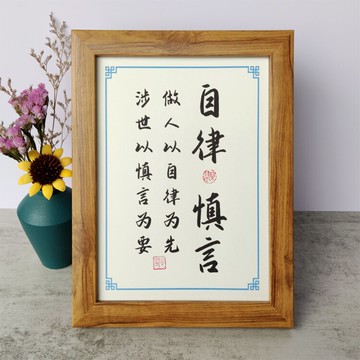 自律 慎言
做人以自律为先
涉世以慎言为要